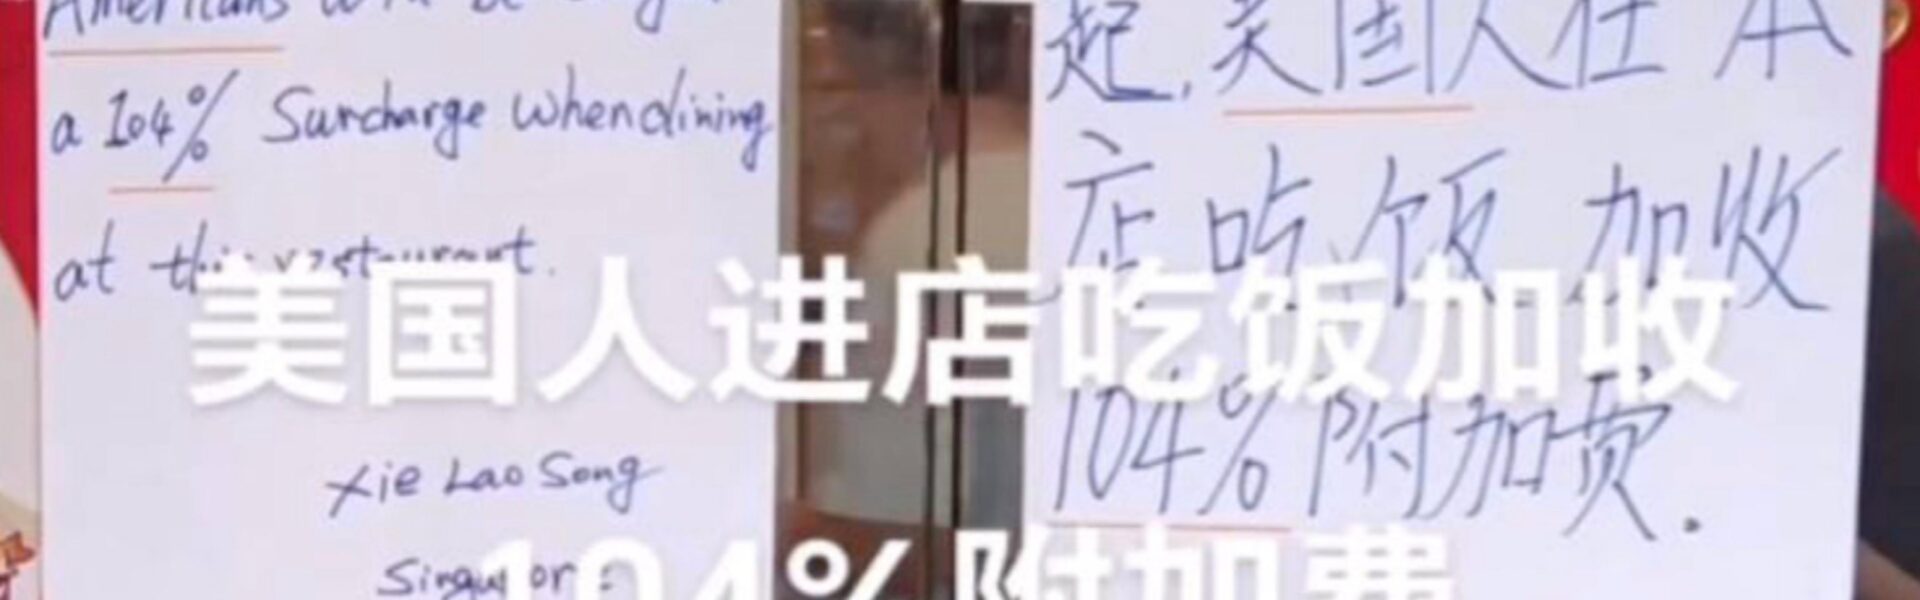 Americans
a 104% Surcharge when dining
at this restaurant.
Xie Lao Song
起,美国人在本
店吃饭,加收
104%附加费.
美国人进店吃饭加收
104%附加费